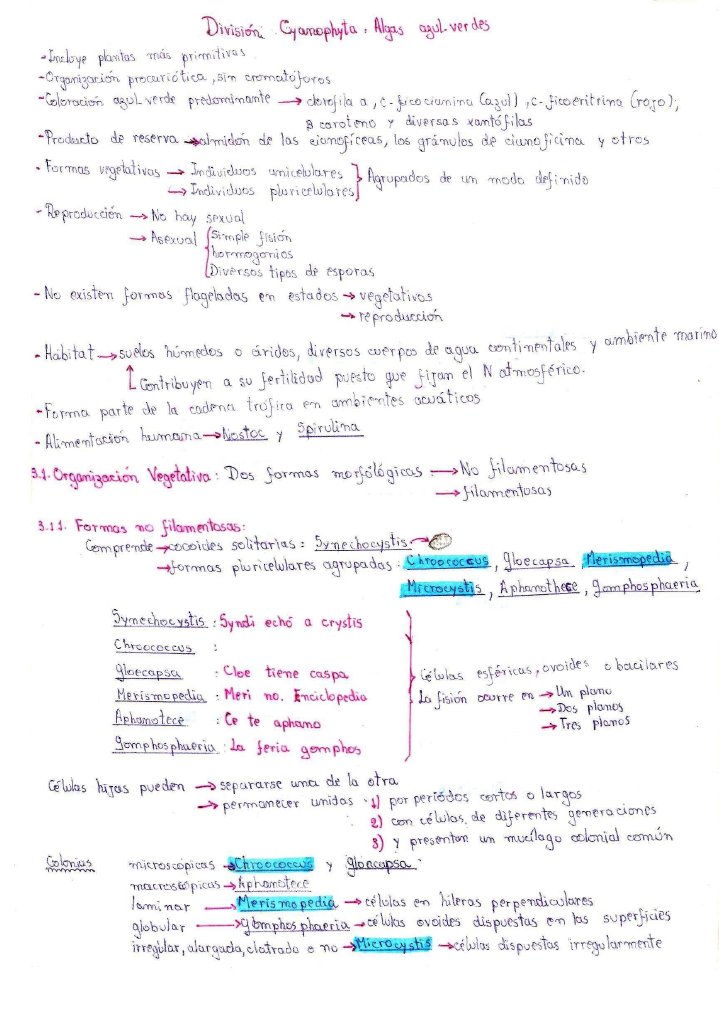 División: Cyanophyta. Algas azul-verdes
-Incluye plantas más primitivas.
-Organización procariótica, sin cromatóforos
-Coloración azul verde predominante → clorofila a, c-ficocianina (azul), c-ficoeritrina (rojo);
B caroteno y diversas xantófilas
-Producto de reserva → almidón de las cianofíceas, los gránulos de cianoficina y otros
-Formas vegetativas → Individuos unicelulares } Agrupados de un modo definido
→ Individuos pluricelulares
-Reproducción → No hay sexual
→ Asexual { Simple fisión
hormogonios
Diversos tipos de esporas
-No existen formas flageladas en estados → vegetativos
→ reproducción
-Hábitat → suelos húmedos o áridos, diversos cuerpos de agua continentales y ambiente marino
↑ Contribuyen a su fertilidad puesto que fijan el N atmosférico.
-Forma parte de la cadena trófica en ambientes acuáticos
-Alimentación humana → Nostoc y Spirulina
3.1. Organización Vegetativa: Dos formas morfológicas: → No filamentosas
→ filamentosas
3.1.1. Formas no filamentosas:
Comprende → cocoides solitarias: Synechocystis. →
→ formas pluricelulares agrupadas: Chroococcus, gloecapsa, Merismopedia,
Microcystis, Aphanothece, gomphosphaeria
Synechocystis : Syndi echó a crystis
Chroococcus :
gloecapsa : Cloe tiene caspa
Merismopedia : Meri no. Enciclopedia
Aphamotece : Ce te aphamo
gomphosphaeria : La feria gomphos
Células esféricas, ovoides o bacilares
La fisión ocurre en → Un plano
→ Dos planos
→ Tres planos
Células hijas pueden → separarse una de la otra
→ permanecer unidas 1) por períodos cortos o largos
2) con células de diferentes generaciones
3) y presentan un mucílago colonial común
Colonias microscópicas → Chroococcus y gloecapsa.
macroscópicas → Aphamotece
laminar → Merismopedia → células en hileras perpendiculares
globular → gomphosphaeria → células ovoides dispuestas en las superficies
irregular, alargada, clatrada o no → Microcystis → células dispuestas irregularmente